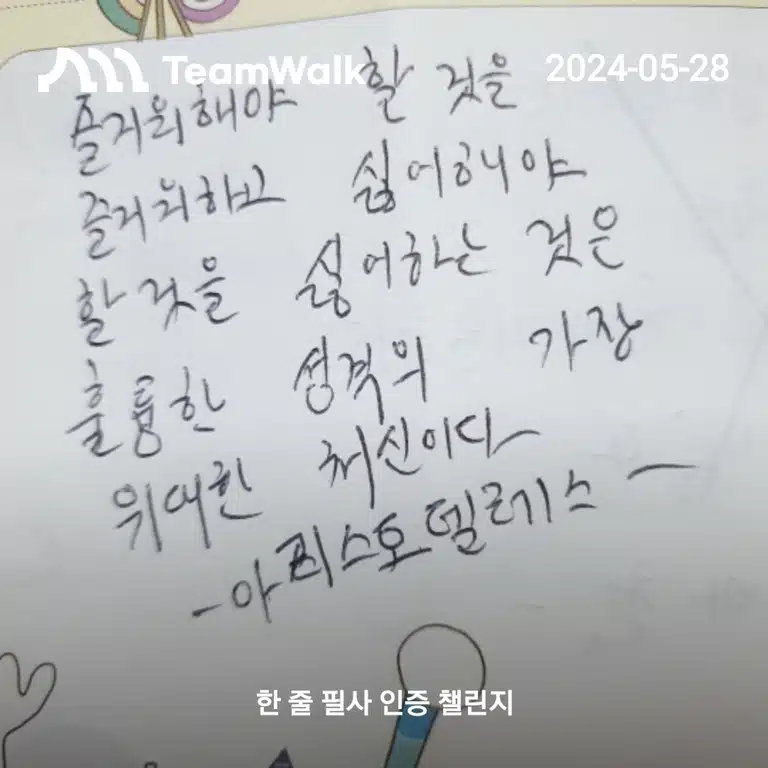 TeamWalk
2024-05-28
즐거워해야 할 것을
즐거워하고 싫어해야
할 것을 싫어하는 것은
훌륭한 성격의 가장
위대한 처신이다
-아리스토텔레스-
한 줄 필사 인증 챌린지